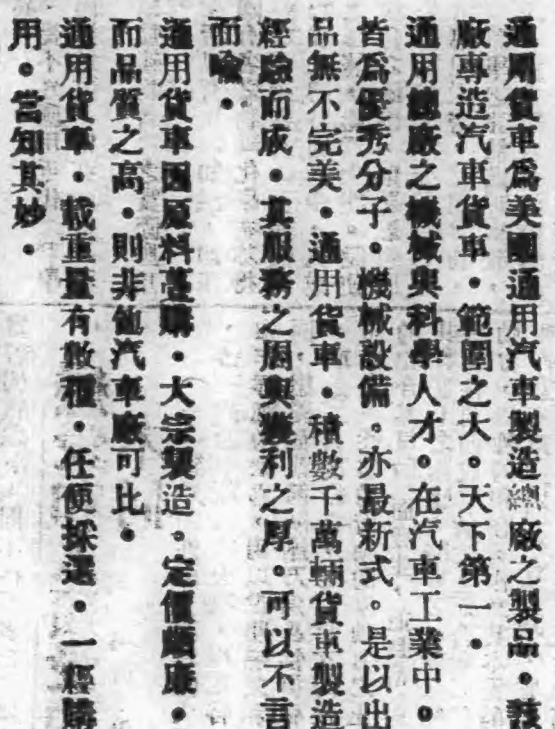 通用貨車爲美國通用汽車製造總廠之製品。該
廠專造汽車貨車。範圍之大。天下第一。
通用總廠之機械與科學人才。在汽車工業中。
皆爲優秀分子。機械設備。亦最新式。是以出
品無不完美。通用貨車。積數千萬輛貨車製造
經驗而成。其服務之周與獲利之厚。可以不言
而喻。
通用貨車因原料躉購。大宗製造。定價頗廉。
而品質之高。則非他汽車廠可比。
通用貨車。載重量有數種。任便採選。一經購
用。當知其妙。